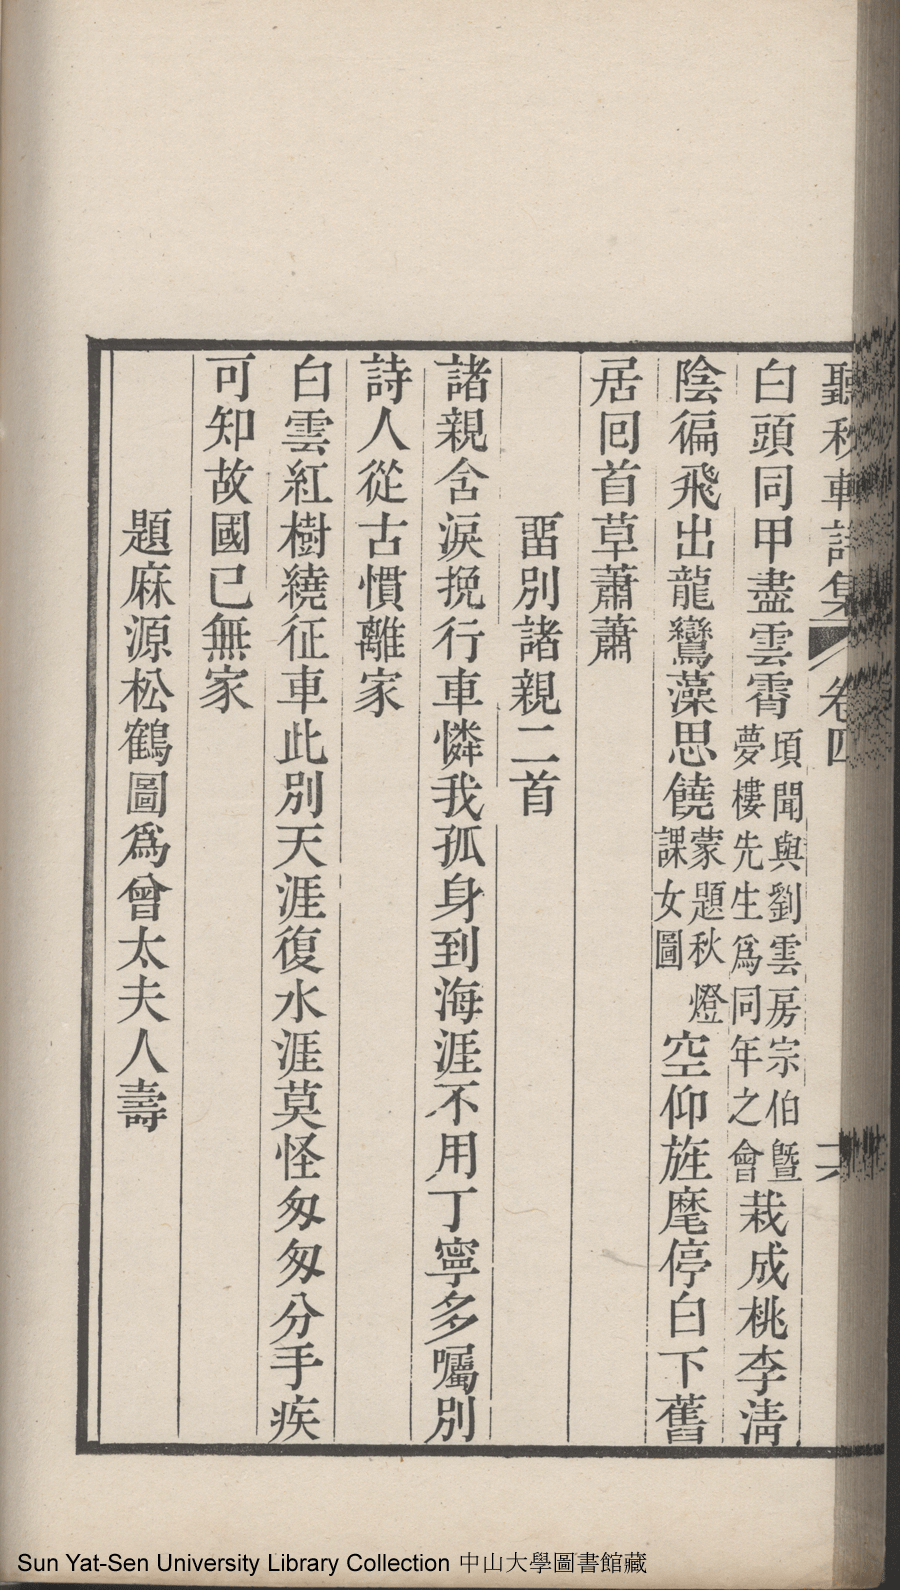 聽秋軒詩集 卷四
白頭同甲盡雲霄頃聞與劉雲房宗伯曁夢樓先生爲同年之會栽成桃李淸
陰徧飛出龍鸞藻思饒蒙題秋燈課女圖空仰旌麾停白下舊
居回首草蕭蕭
畱別諸親二首
諸親含淚挽行車憐我孤身到海涯不用丁寧多囑別
詩人從古慣離家
白雲紅樹繞征車此別天涯復水涯莫怪匆匆分手疾
可知故國已無家
題麻源松鶴圖爲曾太夫人壽
Sun Yat-Sen University Library Collection 中山大學圖書館藏